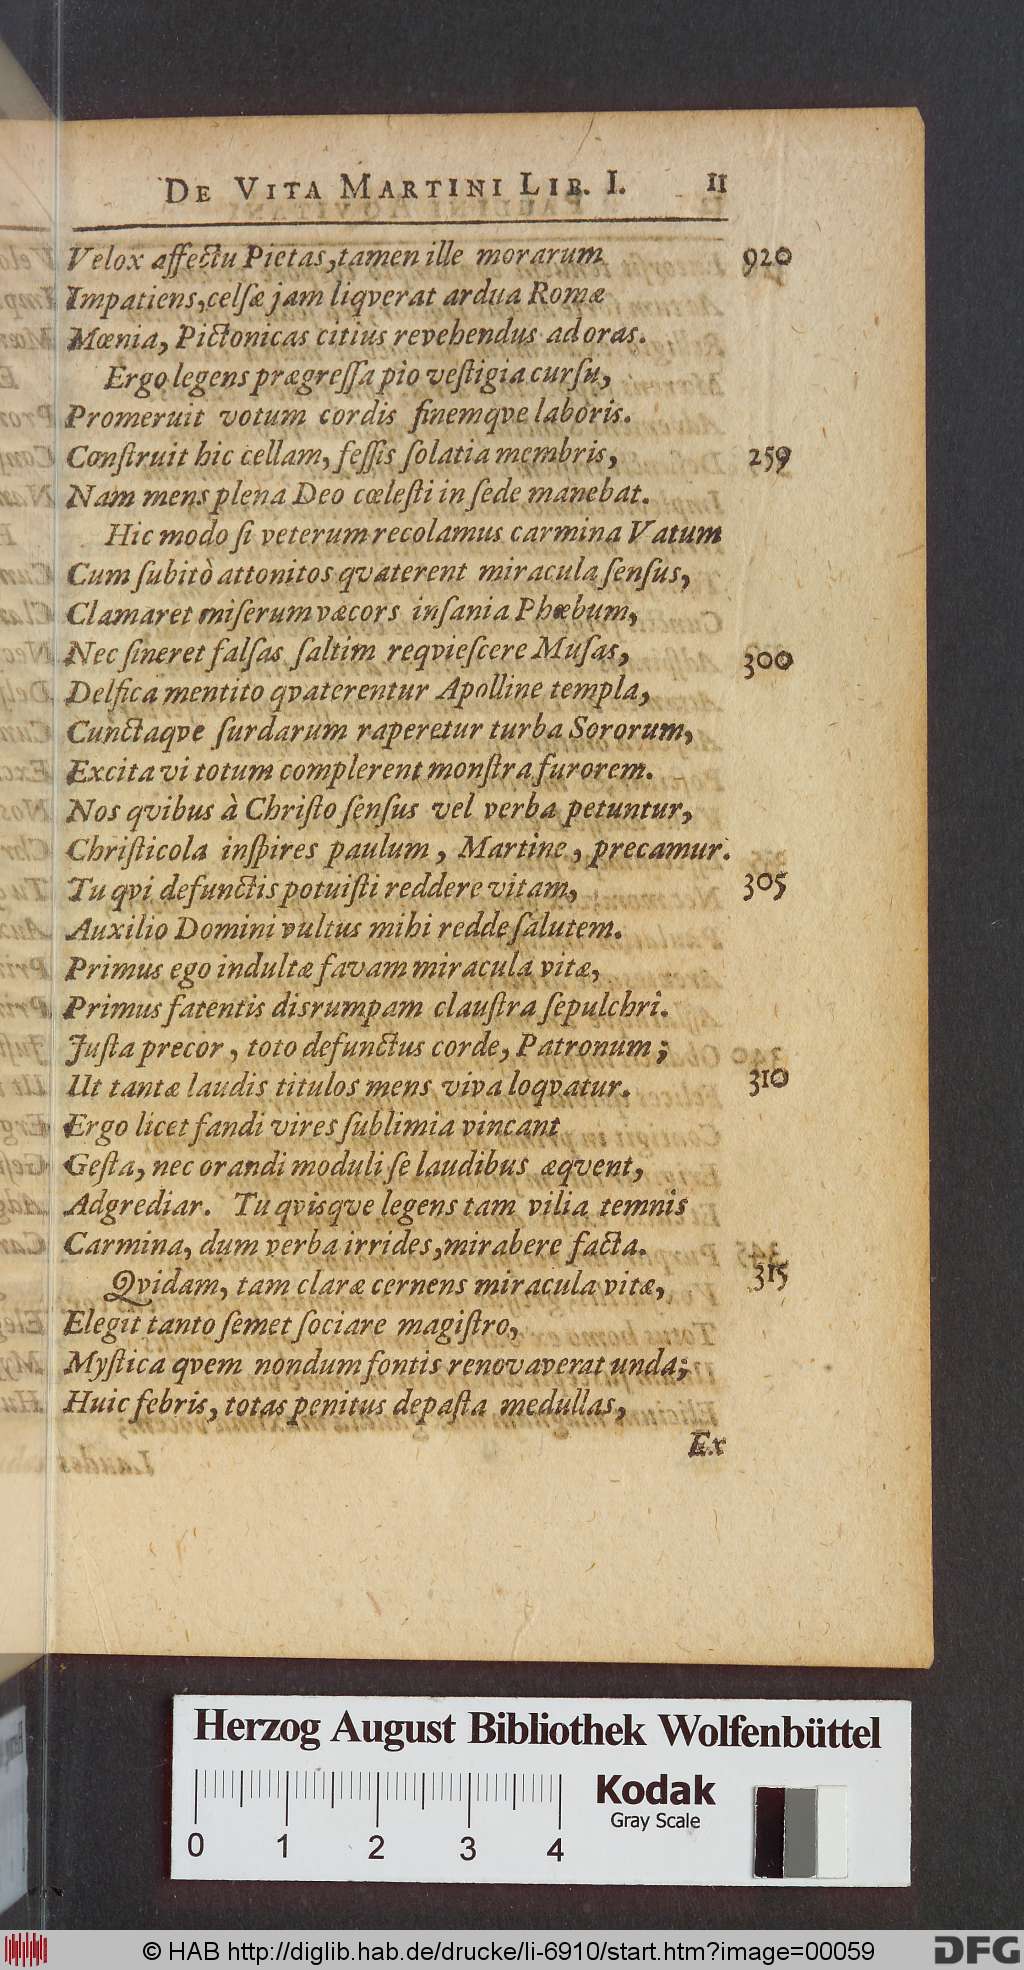 DE VITA MARTINI LIB. I. 11
Velox affectu Pietas, tamen ille morarum 920
Impatiens, celſæ jam liqverat ardua Romæ
Mœnia, Pictonicas citius revehendus ad oras.
Ergo legens prægreſſa pio veſtigia curſu,
Promeruit votum cordis finemqve laboris.
Conſtruit hic cellam, feſſis ſolatia membris, 259
Nam mens plena Deo cœleſti in ſede manebat.
Hic modo ſi veterum recolamus carmina Vatum
Cum ſubitò attonitos qvaterent miracula ſenſus,
Clamaret miſerum væcors inſania Phœbum,
Nec ſineret falſas ſaltim reqvieſcere Muſas, 300
Delfica mentito qvaterentur Apolline templa,
Cunctaqve ſurdarum raperetur turba Sororum,
Excita vi totum complerent monſtra furorem.
Nos qvibus à Chriſto ſenſus vel verba petuntur,
Chriſticola inſpires paulum, Martine, precamur.
Tu qvi defunctis potuiſti reddere vitam, 305
Auxilio Domini vultus mihi redde ſalutem.
Primus ego indultæ favam miracula vitæ,
Primus fatentis disrumpam clauſtra ſepulchri.
Juſta precor, toto defunctus corde, Patronum;
Ut tantæ laudis titulos mens viva loqvatur. 310
Ergo licet fandi vires ſublimia vincant
Geſta, nec orandi moduli ſe laudibus æqvent,
Adgrediar. Tu qvisqve legens tam vilia temnis
Carmina, dum verba irrides, mirabere facta.
Qvidam, tam claræ cernens miracula vitæ, 315
Elegit tanto ſemet ſociare magiſtro,
Myſtica qvem nondum fontis renovaverat unda;
Huic febris, totas penitus depaſta medullas,
Ex
Herzog August Bibliothek Wolfenbüttel
Kodak
Gray Scale
0 1 2 3 4
© HAB http://diglib.hab.de/drucke/li-6910/start.htm?image=00059
DFG